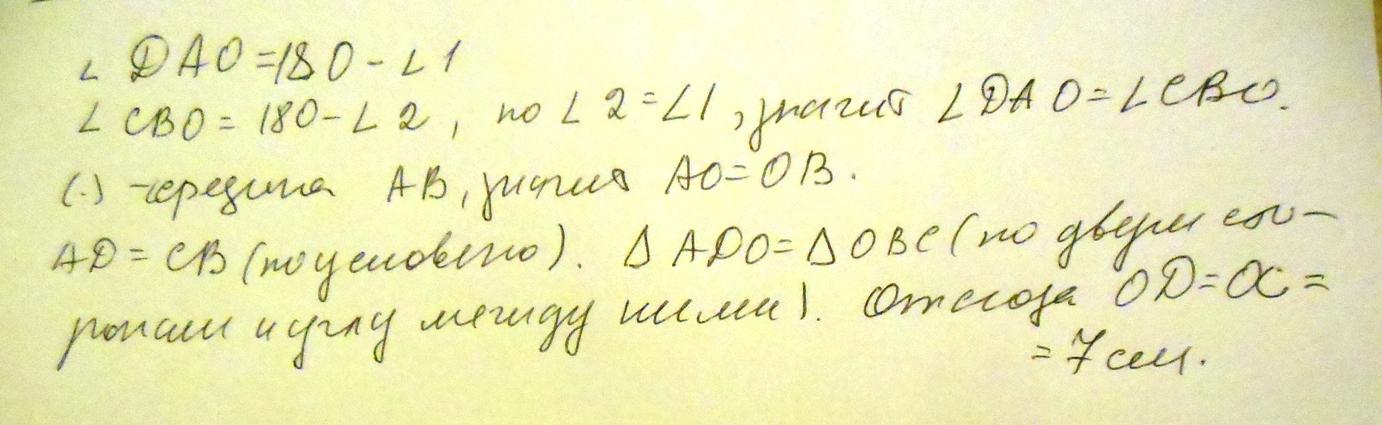 ∠ DAO = 180 - ∠ 1
∠ CBO = 180 - ∠ 2, но ∠ 2 = ∠1, значит ∠ DAO = ∠ CBO.
(·) - середина AB, значит AO = OB.
AD = CB (по условию). Δ ADO = Δ OBC (по двум сто-
ронам и углу между ними). Отсюда OD = OC =
= 7 см.